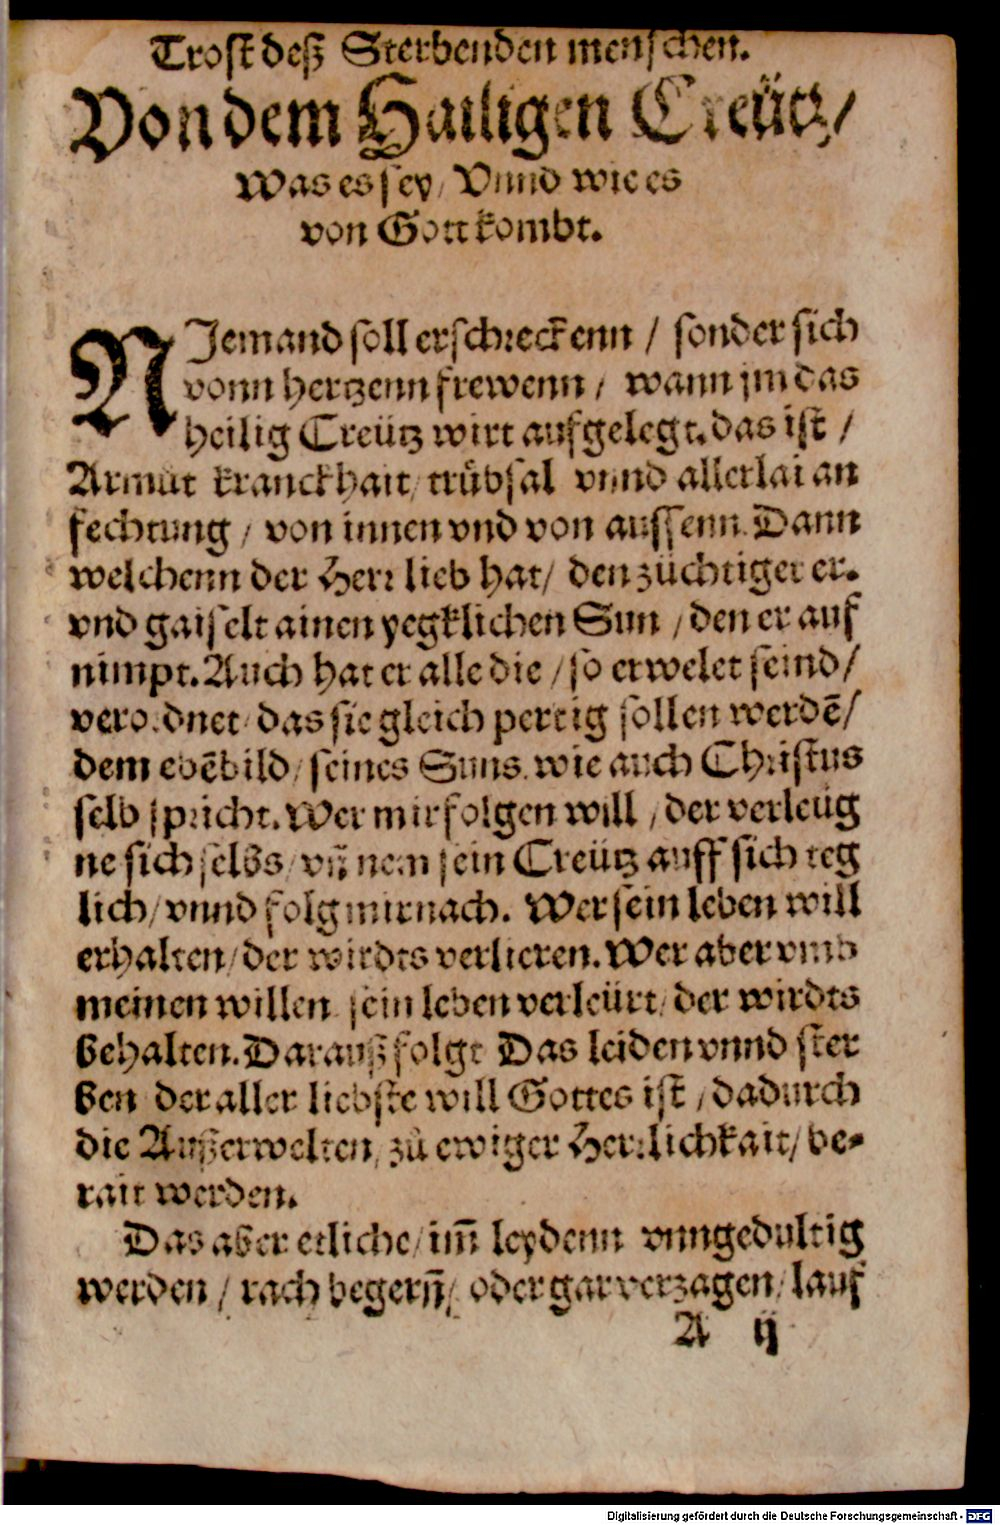 Trost deß Sterbenden menschen.
Von dem Hailigen Creütz/
Was es sey/ Vnnd wie es
von Gott kombt.
NJemand soll erschreckenn / sonder sich
vonn hertzenn frewenn / wann jm das
heilig Creütz wirt aufgelegt. das ist /
Armut kranckhait/ trůbsal vnnd allerlai an
fechtung / von innen vnd von aussenn. Dann
welchenn der Herr lieb hat/ den züchtiget er.
vnd gaiselt ainen yegklichen Sun / den er auf
nimpt. Auch hat er alle die / so erwelet seind/
verordnet/ das sie gleich pertig sollen werdē/
dem ebēbild/ seines Suns. wie auch Christus
selb spricht. Wer mir folgen will / der verleüg
ne sich selbs/ vñ nem sein Creütz auff sich teg
lich/ vnnd folg mir nach. Wer sein leben will
erhalten/ der wirdts verlieren. Wer aber vmb
meinen willen sein leben verleürt/ der wirdts
behalten. Darauß folgt Das leiden vnnd ster
ben der aller liebste will Gottes ist / dadurch
die Außerwelten/ zů ewiger Herrlichkait/ be-
rait werden.
Das aber etliche/ im̄ leydenn vnngedultig
werden / rach begern̄/ oder gar verzagen/ lauf
A ij
Digitalisierung gefördert durch die Deutsche Forschungsgemeinschaft - DFG